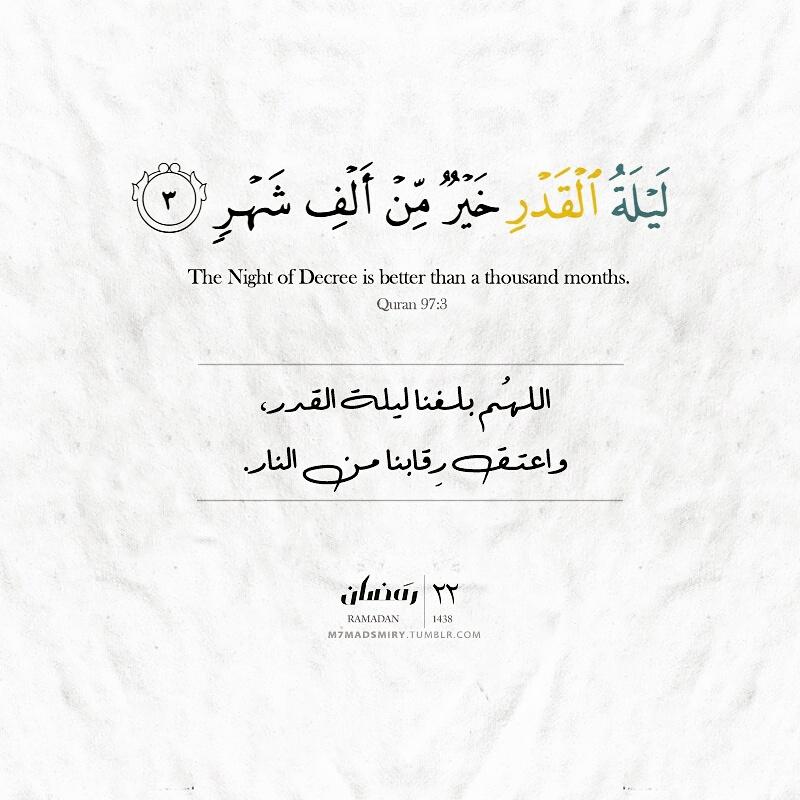 لَيْلَةُ ٱلْقَدْرِ خَيْرٌ مِّنْ أَلْفِ شَهْرٍ ٣
The Night of Decree is better than a thousand months.
Quran 97:3
اللهُم بلغنا ليلة القدر،
واعتق رِقابنا من النار.
٢٢ رمضان
RAMADAN 1438
M7MADSMIRY.TUMBLR.COM